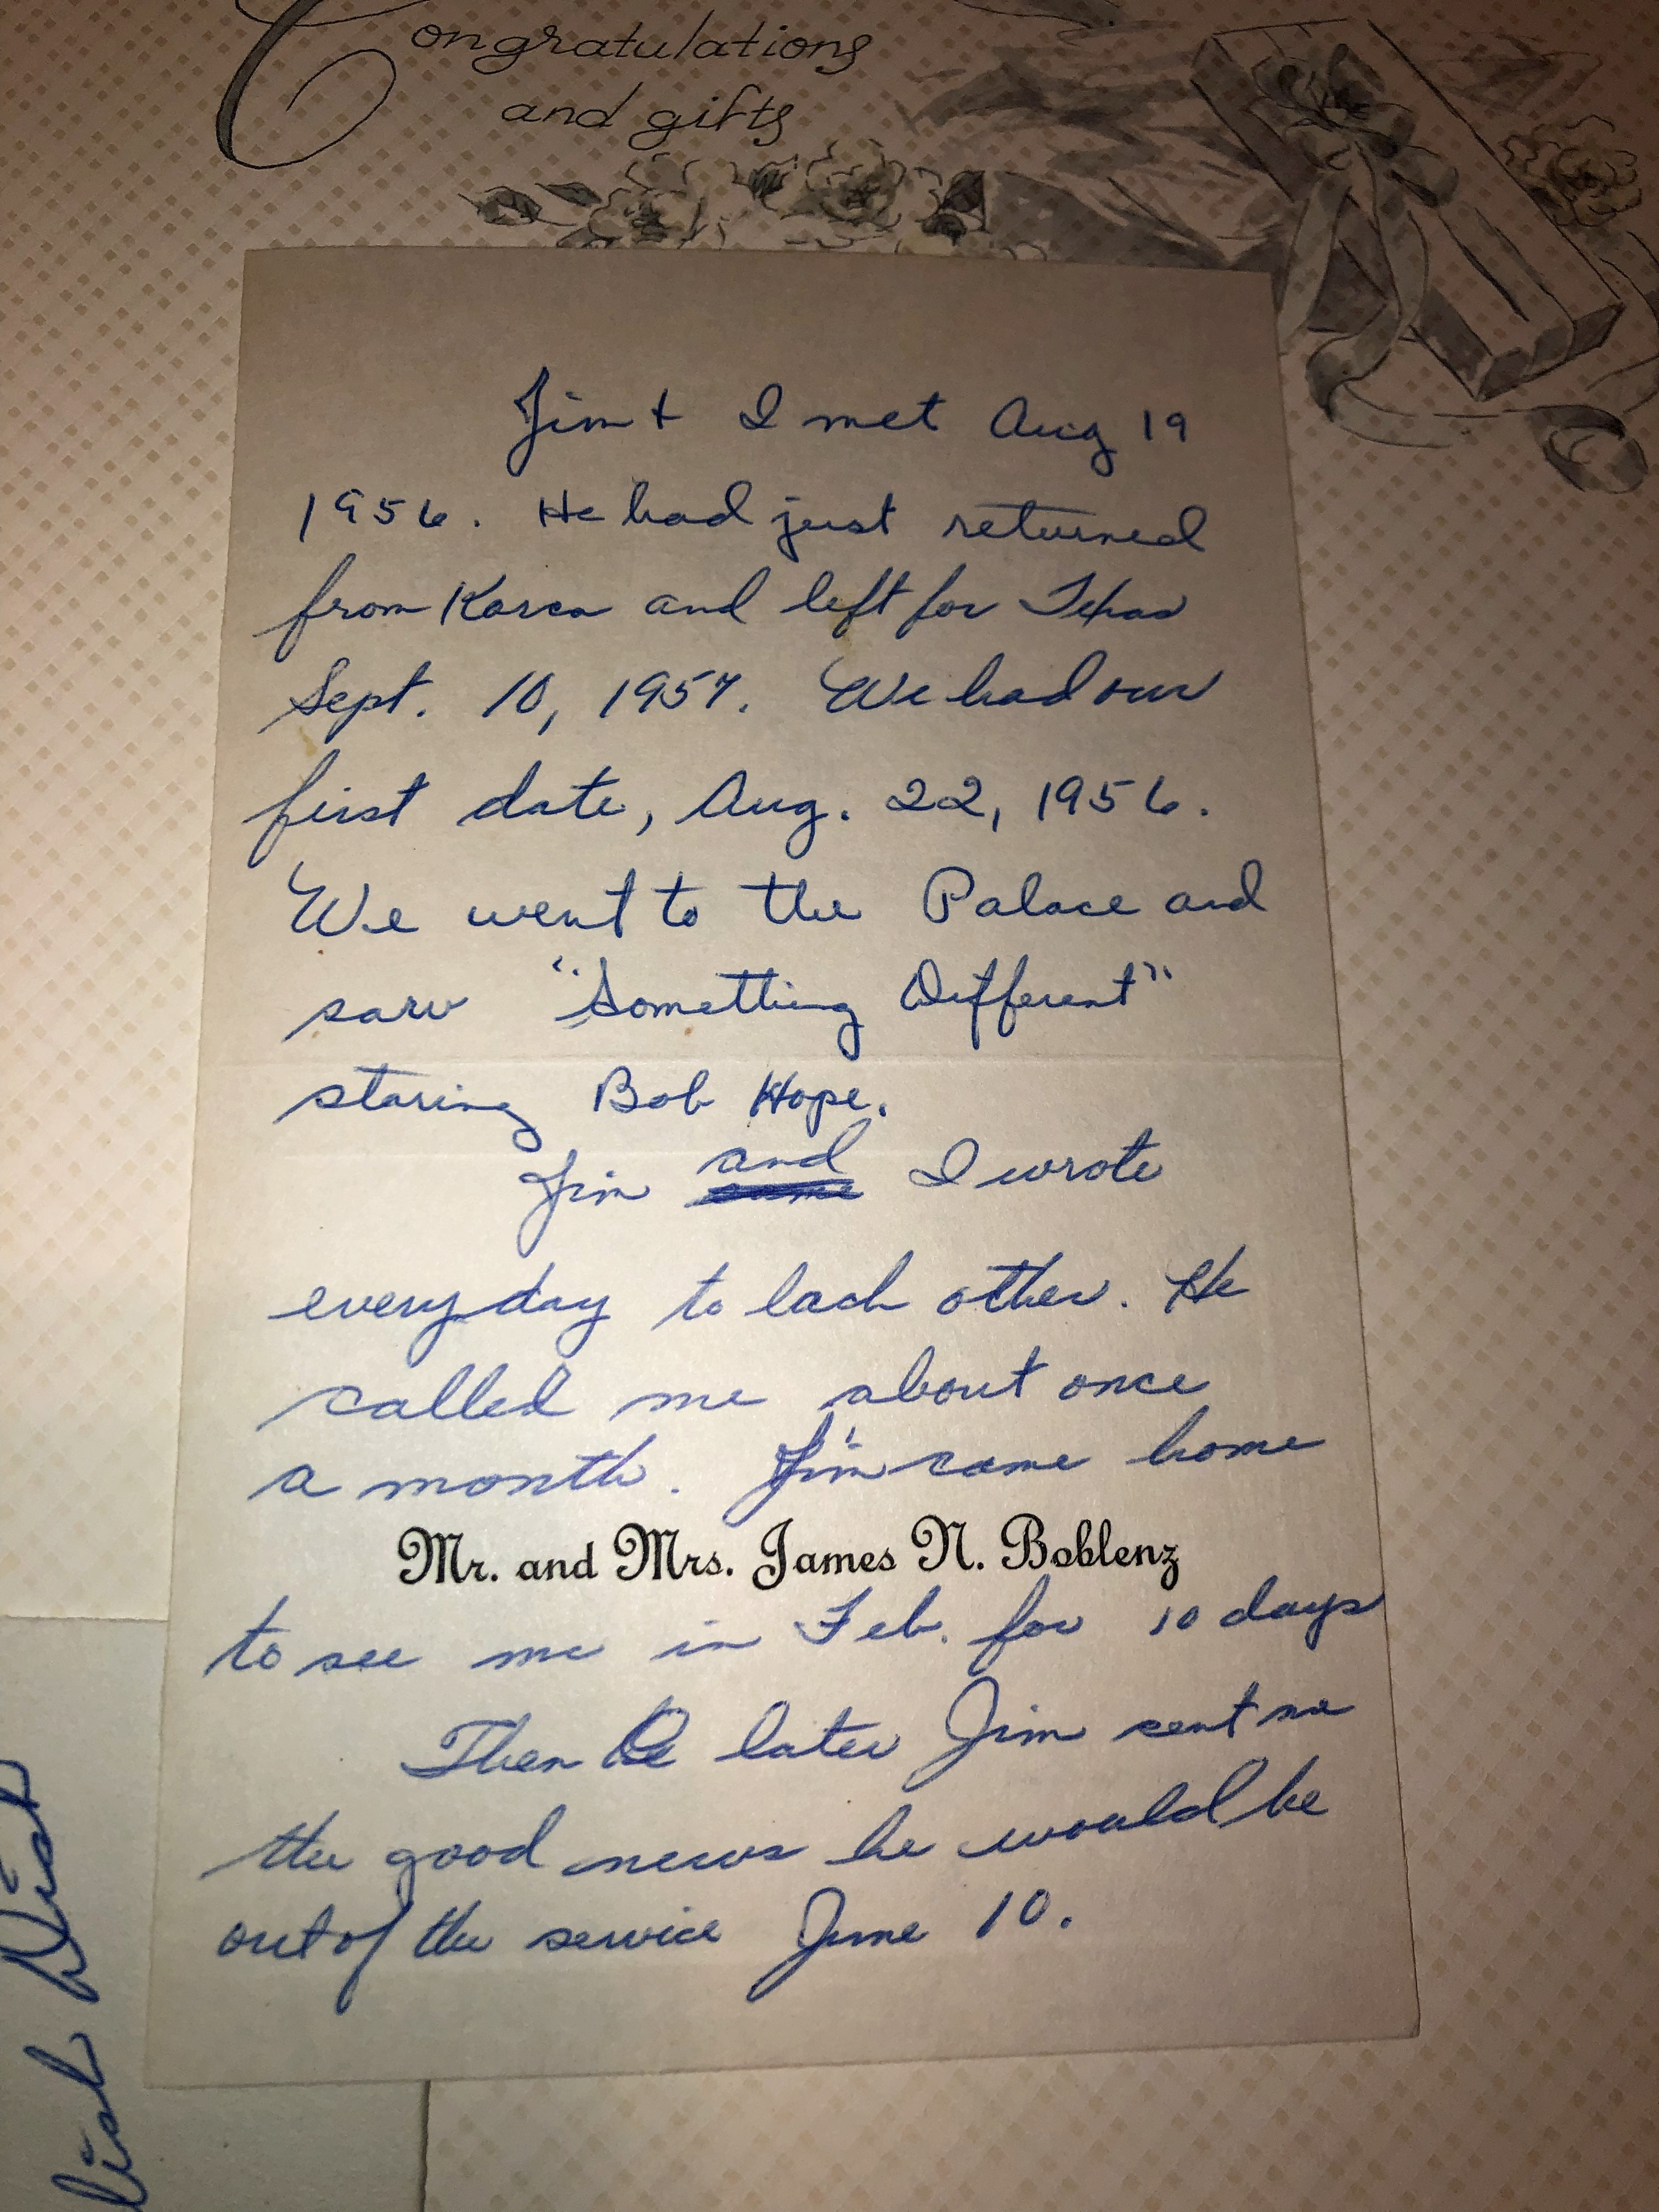 Congratulations
and gifts
Jim + I met Aug 19
1956. He had just returned
from Korea and left for Texas
Sept. 10, 1957. We had our
first date, Aug. 22, 1956.
We went to the Palace and
saw "Something Different"
staring Bob Hope.
Jim and I wrote
everyday to each other. He
called me about once
a month. Jim came home
Mr. and Mrs. James N. Boblenz
to see me in Feb. for 10 days
Then later Jim sent me
the good news he would be
out of the service June 10.